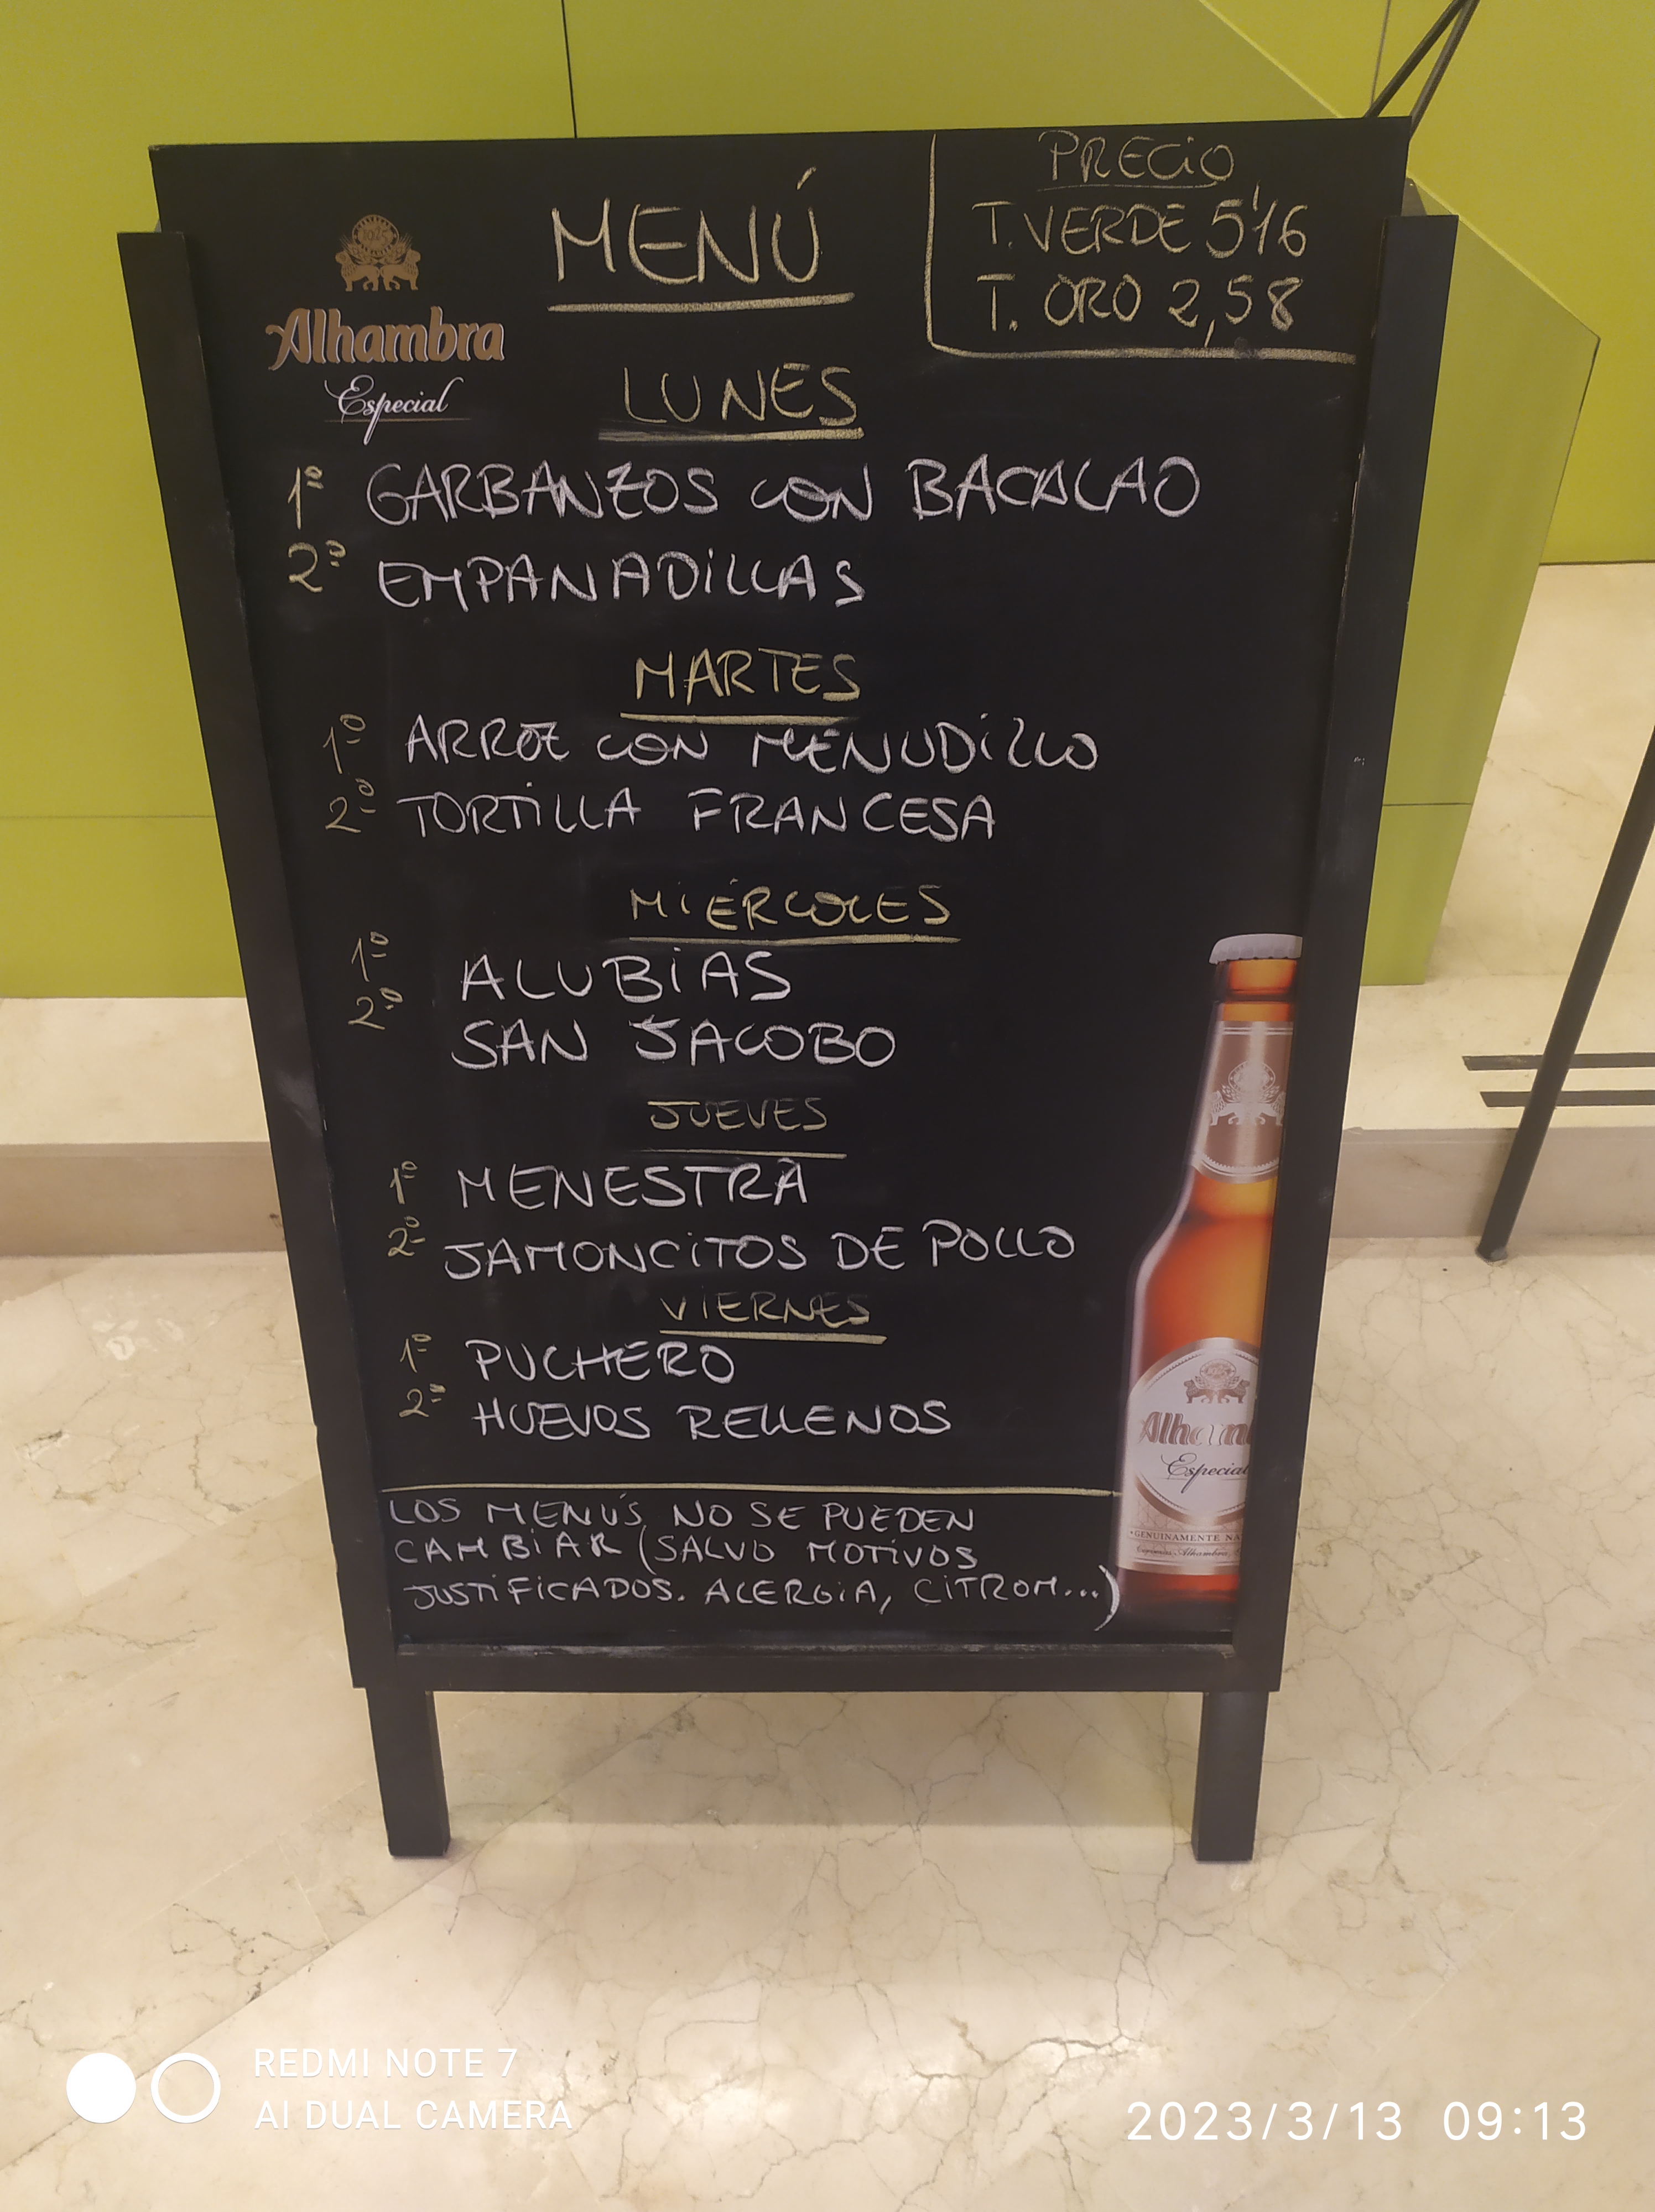 PRECIO
T. VERDE 5'16
T. ORO 2,58
MENÚ
Alhambra
Especial
LUNES
1º GARBANZOS CON BACALAO
2º EMPANADILLAS
MARTES
1º ARROZ CON MENUDILLO
2º TORTILLA FRANCESA
MIÉRCOLES
1º ALUBIAS
2º SAN JACOBO
JUEVES
1º MENESTRA
2º JAMONCITOS DE POLLO
VIERNES
1º PUCHERO
2º HUEVOS RELLENOS
LOS MENÚS NO SE PUEDEN
CAMBIAR (SALVO MOTIVOS
JUSTIFICADOS. ALERGIA, CITROM...)
Alham
Especial
GENUINAMENTE NA
REDMI NOTE 7
AI DUAL CAMERA
2023/3/13 09:13